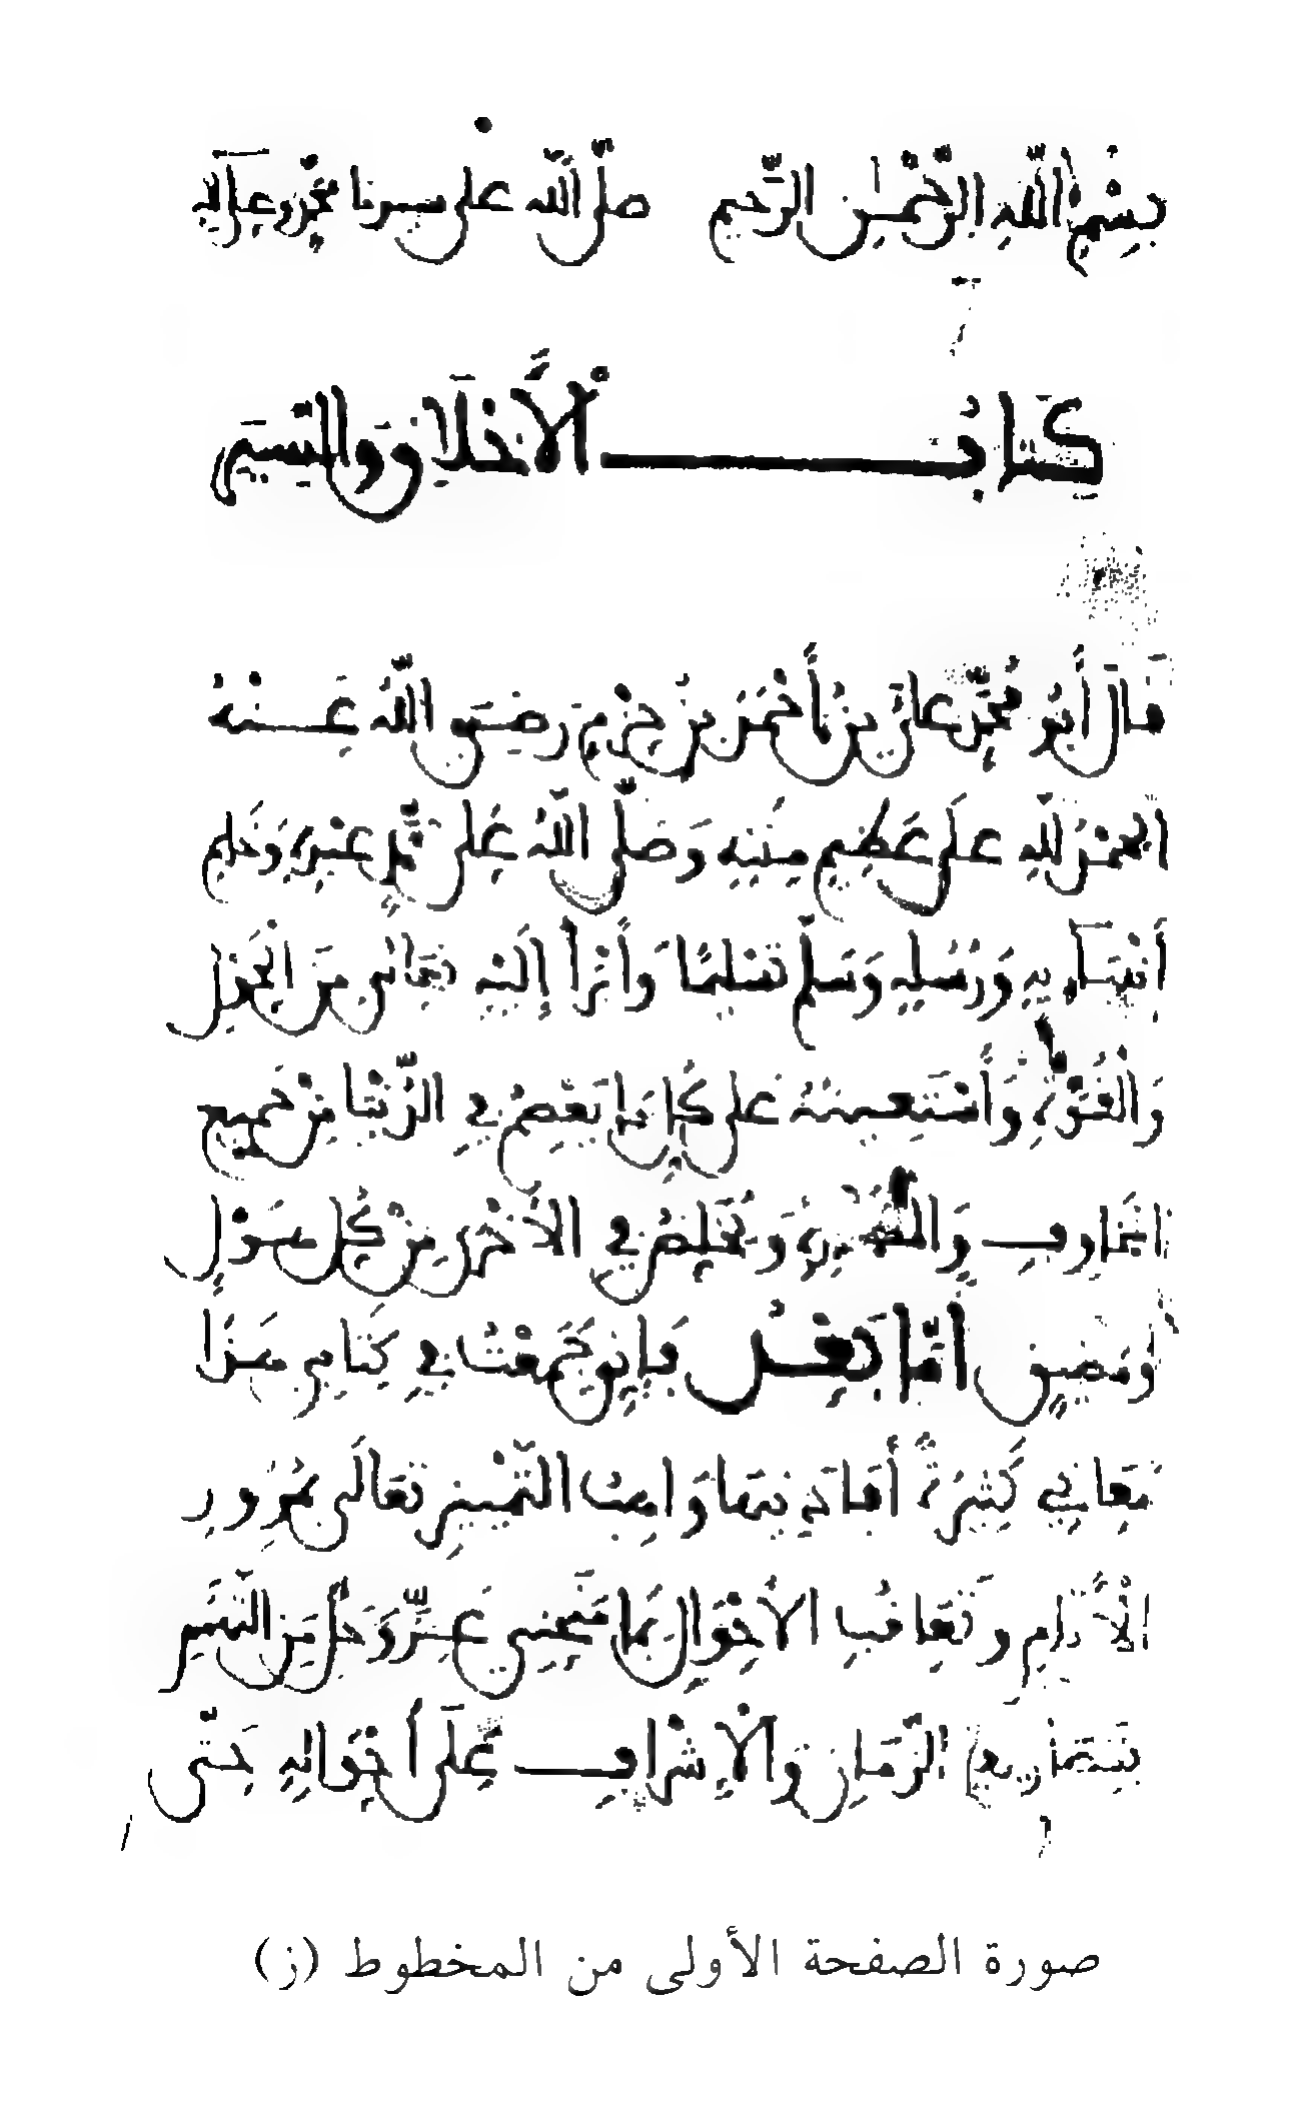 بِسْمِ اللَّهِ الرَّحْمَٰنِ الرَّحِيمِ صلَّى اللَّه على سيدنا محمَّد وعلى آله
كِتَابُ الْأَخْلَاقِ وَالسِّيَرِ
قَالَ أَبُو مُحَمَّد عَلِيُّ بْنُ أَحْمَدَ بْنِ حَزْمٍ رَضِيَ اللَّهُ عَنْهُ
الحَمْدُ لِلَّهِ عَلَى عَظِيمِ مِنَنِهِ وَصَلَّى اللَّهُ عَلَى مُحَمَّدٍ عَبْدِهِ وَخَاتَمِ
أَنْبِيَائِهِ وَرُسُلِهِ وَسَلَّمَ تَسْلِيمًا وَأَبْرَأُ إِلَيْهِ تَعَالَى مِنَ الْحَوْلِ
وَالْقُوَّةِ وَأَسْتَعِينُهُ عَلَى كُلِّ مَا يَعْصِمُ فِي الدُّنْيَا مِنْ جَمِيعِ
المَخَاوِفِ وَالْمَكَارِهِ وَيُخَلِّصُ فِي الْأُخْرَى مِنْ كُلِّ هَوْلٍ
وَمَضِيقٍ أَمَّا بَعْدُ فَإِنِّي جَمَعْتُ فِي كِتَابِي هَذَا
مَعَانِي كَثِيرَةً أَفَادَنِيهَا وَاهِبُ التَّمْيِيزِ تَعَالَى بِمُرُورِ
الْأَيَّامِ وَتَعَاقُبِ الْأَحْوَالِ بِمَا مَنَحَنِي عَزَّ وَجَلَّ مِنَ التَّهَمُّمِ
بِتَصَارِيفِ الزَّمَانِ وَالْإِشْرَافِ عَلَى أَحْوَالِهِ حَتَّى
صورة الصفحة الأولى من المخطوط (ز)